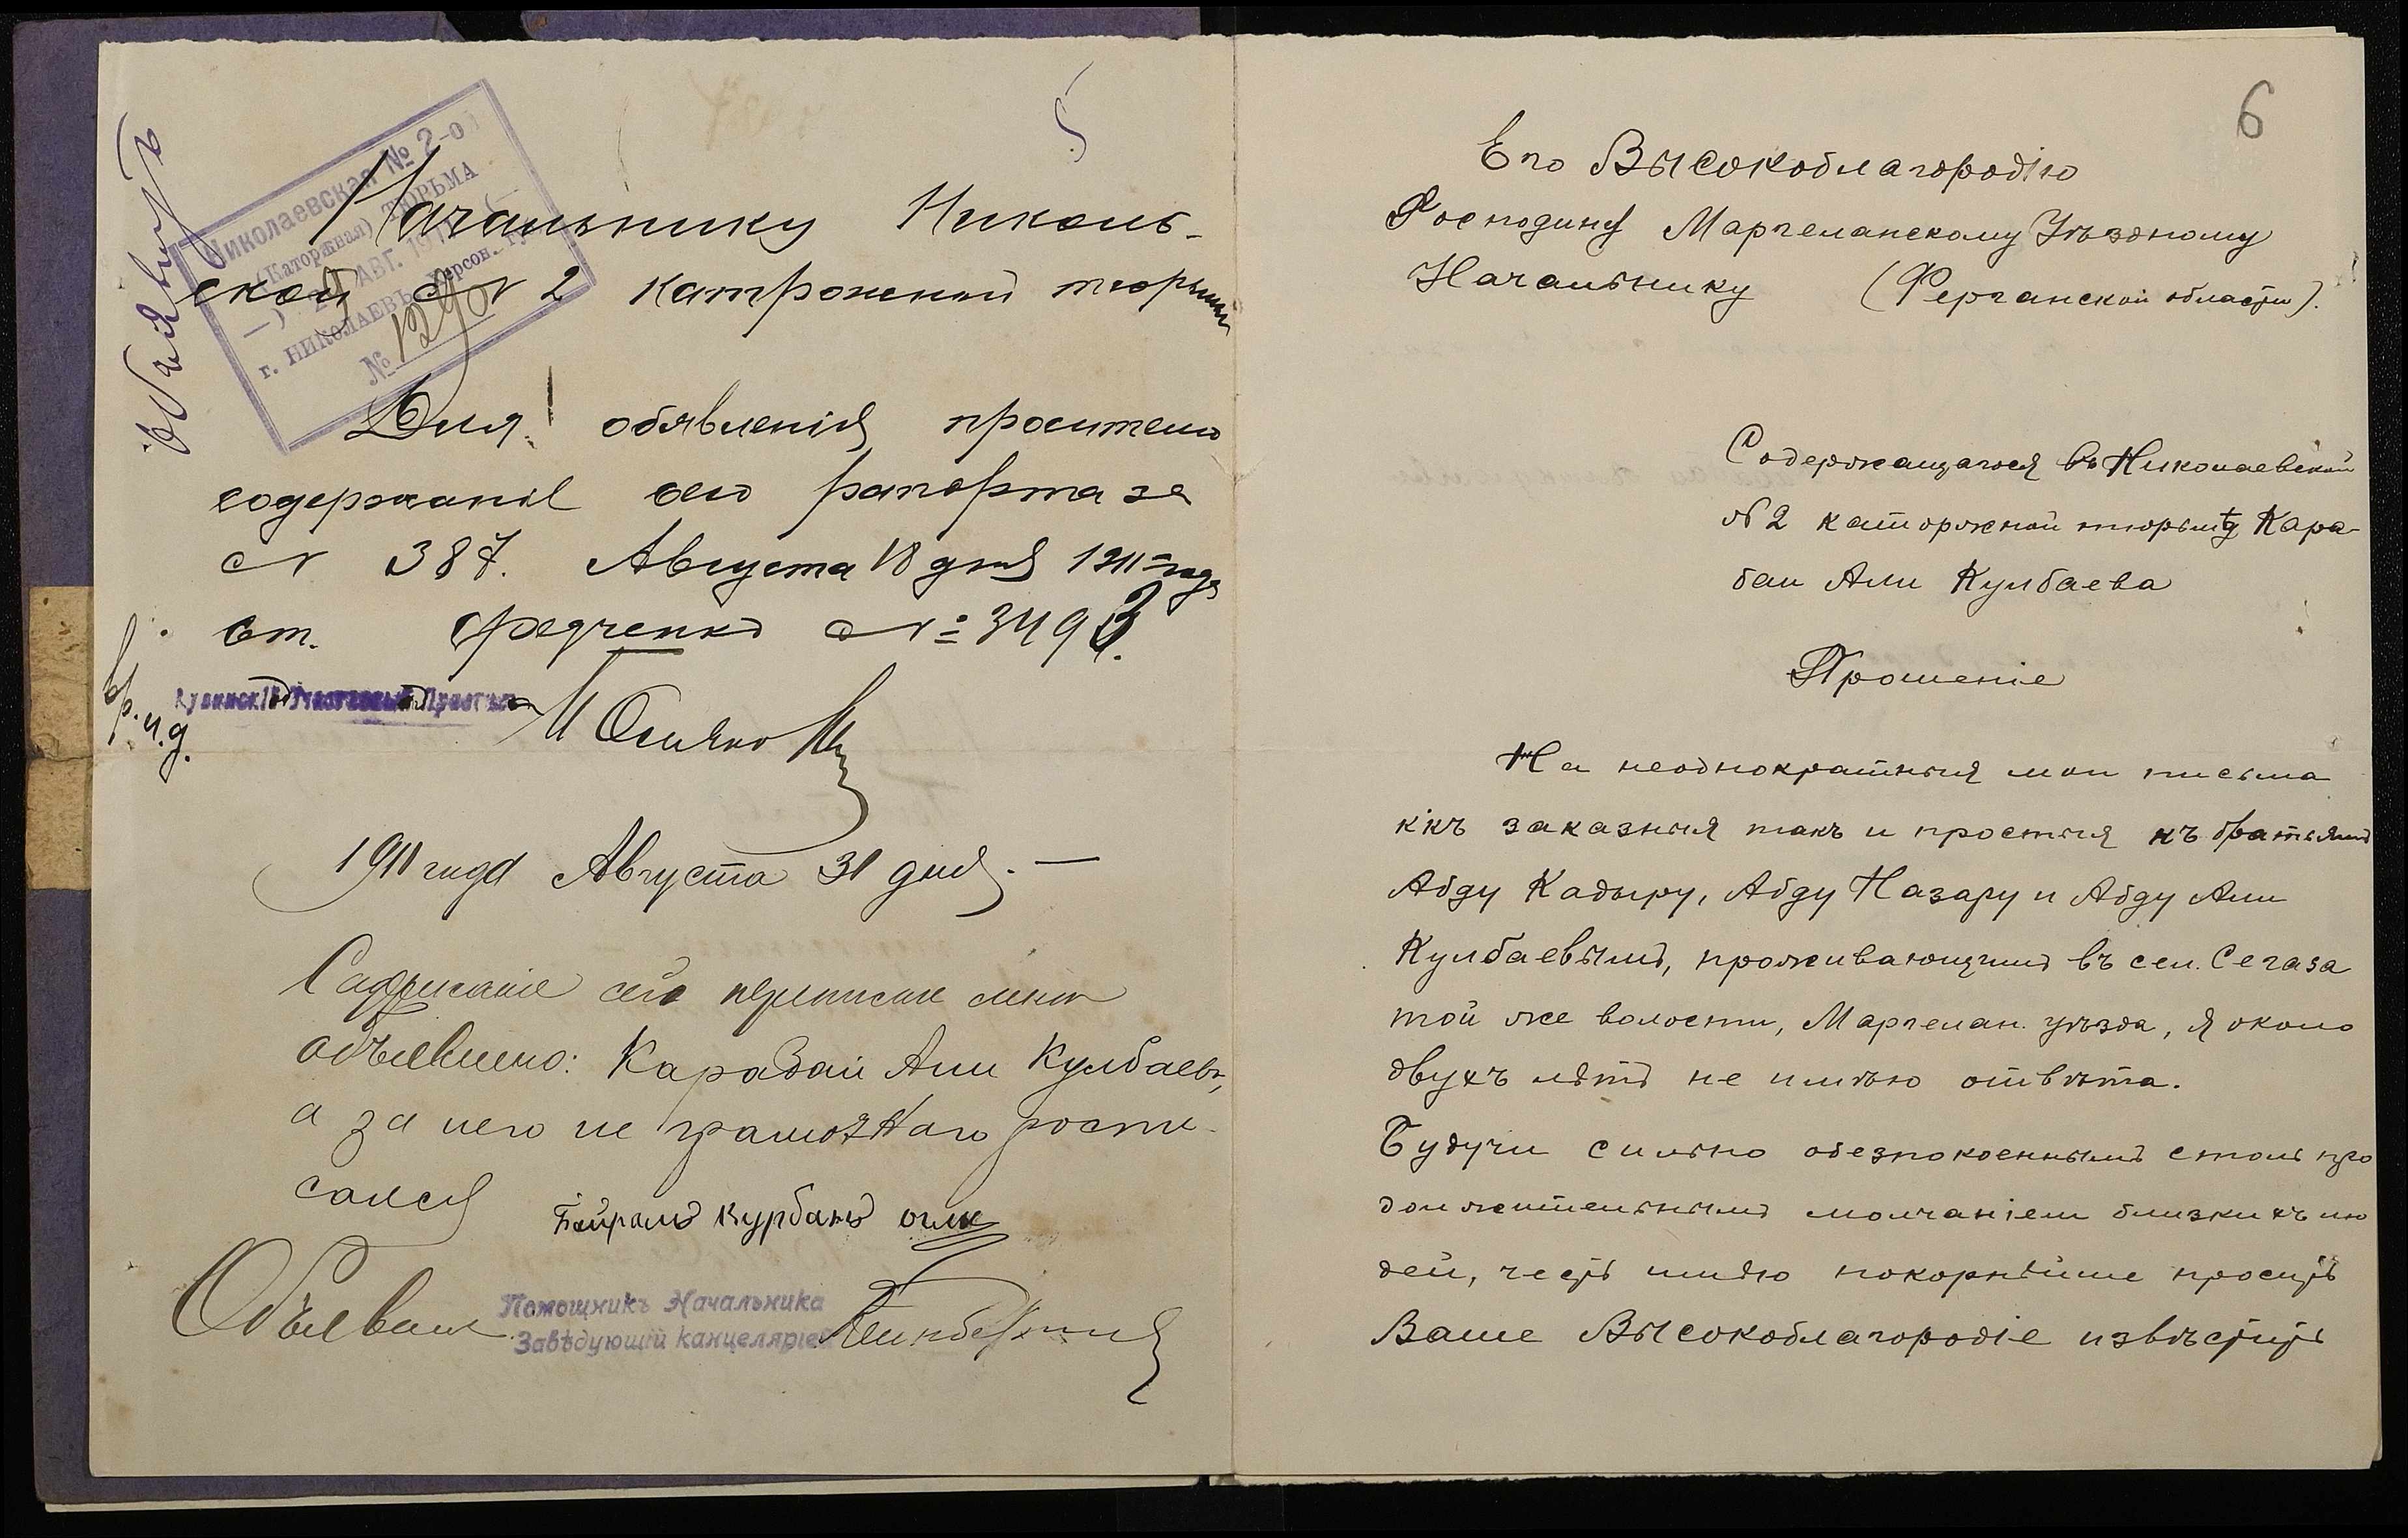 Николаевская № 2-о
(Каторжная) ТЮРЬМА
АВГ. 191
г. НИКОЛАЕВЪ, Херсон. г
№ 1290
Начальнику Николь-
ской № 2 катроженой тюрьмы
Для объявленія просителю
содержаніе сего рапорта за
№ 387. Августа 18 дня 1911 года
ст. Федченко № 3493.
вр. и. д.
Участковый Приставъ
1911 года Августа 31 дня. —
Содержаніе сей переписки мнѣ
объявлено: Карабай Али Кулбаевъ,
а за него не грамотнаго роспи-
сался Байрамъ Курбанъ оглы
Объявилъ
Помощникъ Начальника
Завѣдующій канцеляріей
6
Его Высокоблагородію
Господину Маргеланскому Уѣздному
Начальнику (Ферганской области).
Содержащагося въ Николаевской
№ 2 каторжной тюрьмѣ Кара-
баи Али Кулбаева
Прошеніе
На неоднократныя мои письма
какъ заказныя такъ и простыя къ братьямъ
Абду Кадыру, Абду Назару и Абду Али
Кулбаевымъ, проживающимъ въ сел. Сегаза
той же волости, Маргелан. уѣзда, я около
двухъ лѣтъ не имѣю отвѣта.
Будучи сильно обезпокоеннымъ столь про
должительнымъ молчаніем близкихъ лю
дей, честь имѣю покорнѣйше просить
Ваше Высокоблагородіе извѣстить